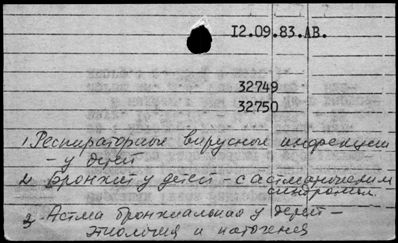 12.09.83.АВ.
32749
32750
1. Респираторные вирусные инфекции
- у детей
2. Бронхит у детей - с астматическим
синдромом.
3. Астма бронхиальная у детей -
этиология и патогенез